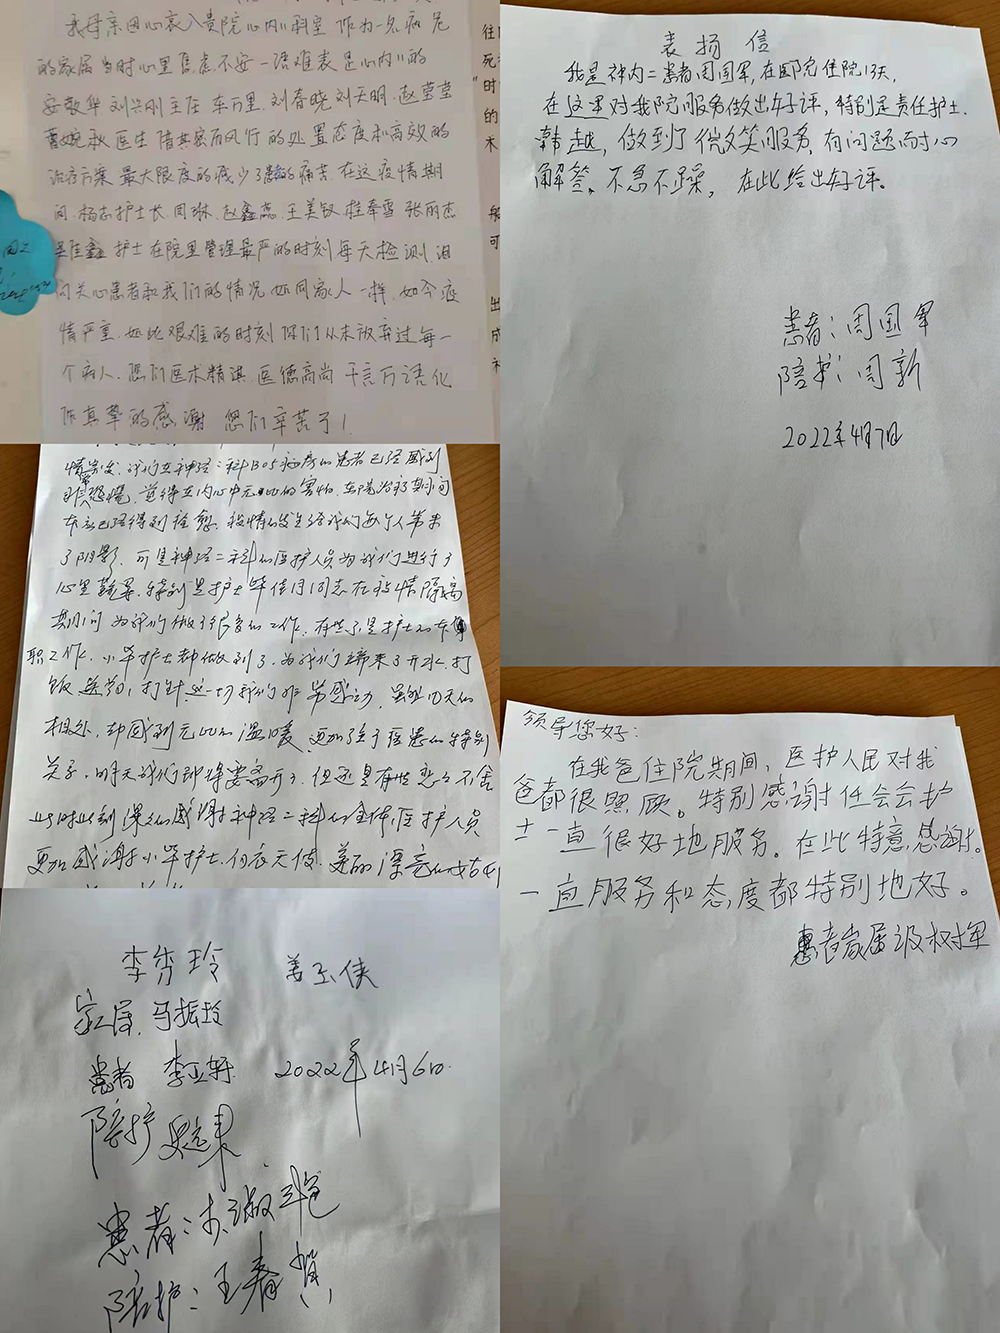 我母亲因心衰入贵院心内Ⅱ科室 作为一名病危
的家属 当时心里焦虑不安 一语难表 是心内Ⅱ的
安敬华 刘兴刚主任 车万里 刘春晓 刘天明 赵莹莹
医生 借其密而风行的处置态度和高效的
治疗方案 最大限度的减少了患的痛苦 在这疫情期
间 杨志护士长 周琳 赵鑫蕊 王美钗 桂奉雪 张丽杰
护士 在院里管理最严的时刻 每天检测 询
问关心患者和我们的情况 如同家人一样 如今疫
情严重 如此艰难的时刻 你们从未放弃过每一
个病人 您们医术精湛 医德高尚 千言万语化
作真挚的感谢 您们辛苦了!
往
死
时
的
未
般
可
出
成
表扬信
我是神内二患者周国军,在医院住院13天,
在这里对我院服务做出好评,特别是责任护士
韩越,做到了微笑服务,有问题耐心
解答、不急不躁,在此给出好评。
患者:周国军
陪护:周新
2022年4月7日
情突发,我们在神经二科B05病房的患者已经感到
恐慌,觉得在内心中无比的害怕,在院治疗期间
本应已经得到痊愈,疫情的发生给我们每个人带来
了阴影,可是神经二科的医护人员为我们进行了
心里疏导,特别是护士毕佳月同志在疫情隔离
期间为我们做了很多的工作,有些不是护士的本
职工作,小毕护士却做到了,为我们带来了开水,打
饭 送药,打针,这一切我们非常感动,虽然几天的
相处,却感到无比的温暖,更加强了医患的特别
关系,明天我们即将要离开了,但还是有些恋恋不舍
此时此刻深深的感谢神经二科的全体医护人员
更加感谢小毕护士,白衣天使,美丽漂亮的
领导您好:
在我爸住院期间,医护人民对我
爸都很照顾。特别感谢任会会护
士一直很好地服务。在此特意感谢。
一直服务和态度都特别地好。
患者家属 树军
李秀玲 姜玉侠
家属 马振玲
患者 李立轩 2022年4月6日
陪护
患者:
陪护:王春贺